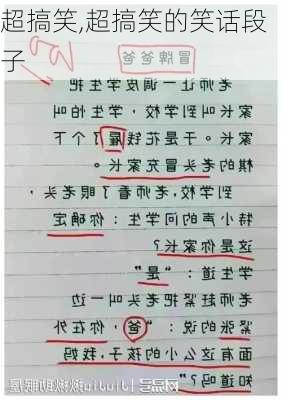 超搞笑,超搞笑的笑话段
子
冒牌爸爸
老师让一调皮学生把
家长叫到学校，学生怕叫
家长。于是花钱雇了个下
棋的老头冒充家长。
到学校，老师看了眼老头，
特小声的问学生：你确定
这是你家长？
学生道：“是”
老师赶紧把老头叫一边
紧张的说：“爸，你在外
面有这么小的孩子，我妈
知道吗？”
网易号